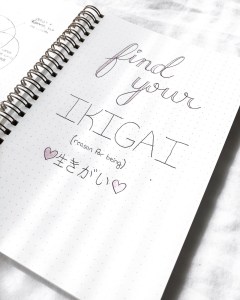 find
your
IKIGAI
(reason for being)
生きがい